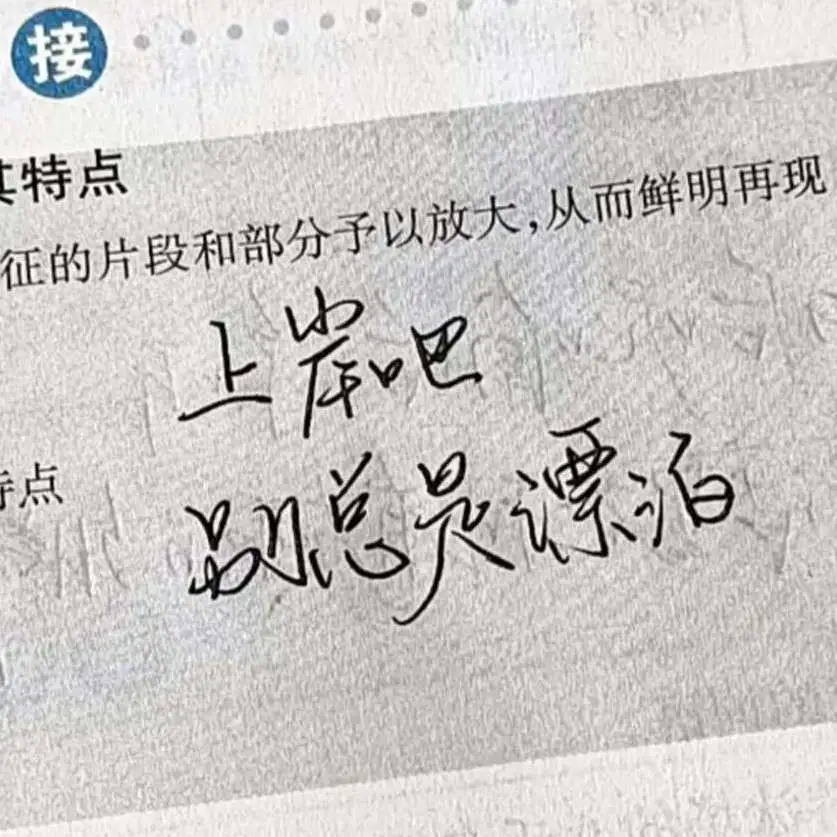 接
其特点
征的片段和部分予以放大,从而鲜明再现
上岸吧
特点
别总是漂泊